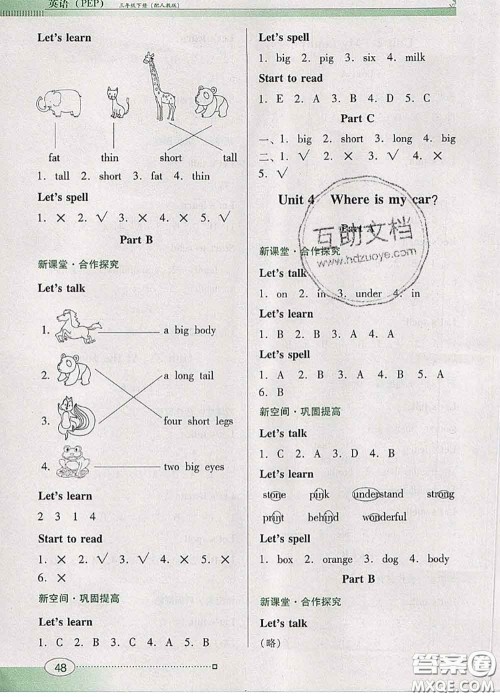 英语（PEP） 三年级下册（配人教版）
Let's learn
fat thin short tall
1. tall 2. short 3. fat 4. thin
Let's spell
1. × 2. √ 3. × 4. × 5. √
Part B
新课堂·合作探究
Let's talk
1. a big body
2. a long tail
3. four short legs
4. two big eyes
Let's learn
2 3 1 4
Start to read
1. × 2. √ 3. √ 4. × 5. √
6. ×
新空间·巩固提高
Let's talk
1. C 2. B 3. A 4. B 5. A
48
Let's spell
1. big 2. pig 3. six 4. milk
Start to read
1. E 2. A 3. B 4. D 5. C
Part C
一、1. big 2. short 3. long 4. big
二、1. √ 2. × 3. × 4. ×
5. √
Unit 4 Where is my car?
Part A
新课堂·合作探究
Let's talk
1. on 2. in 3. under 4. in
Let's learn
1. B 2. B 3. A 4. A
Let's spell
1. A 2. B 3. A 4. B 5. A
6. B
新空间·巩固提高
Let's talk
1. C 2. A 3. D 4. B
Let's learn
stone pink understand strong
print behind wonderful
Let's spell
1. box 2. orange 3. dog 4. body
Part B
新课堂·合作探究
Let's talk
（略）
互助文档
www.hdzuoye.com
答案圈
MXQE.COM